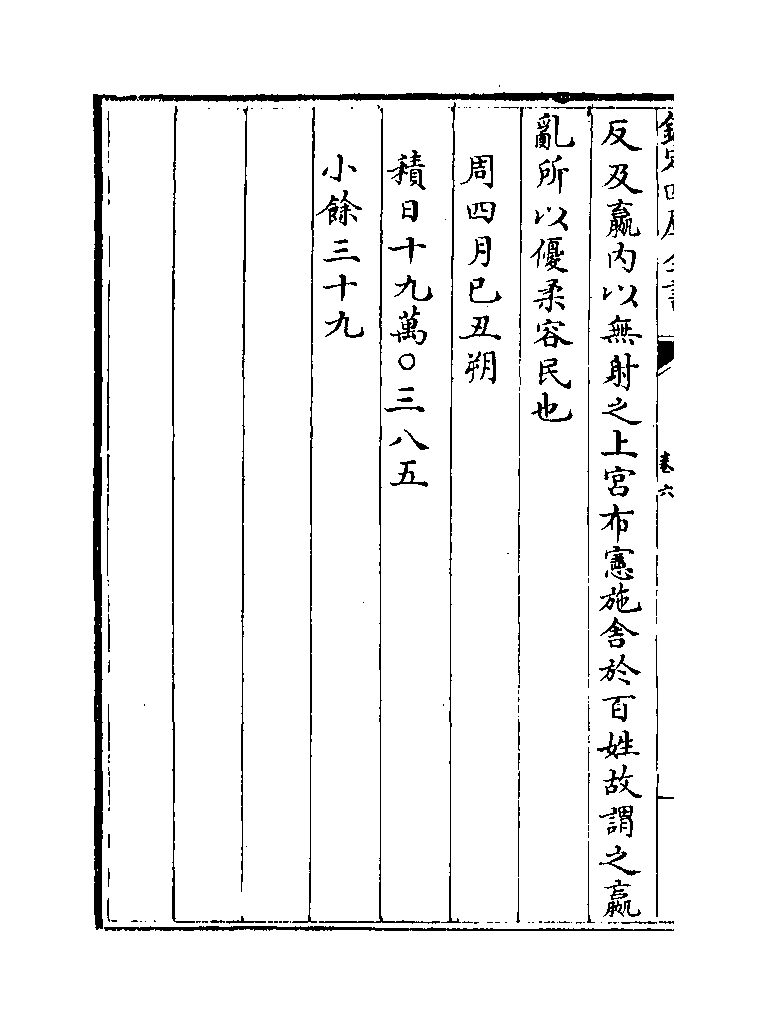 反及嬴內以無射之上宮布憲施舍於百姓故謂之嬴
亂所以優柔容民也
周四月已丑朔
積日十九萬〇三八五
小餘三十九
卷六